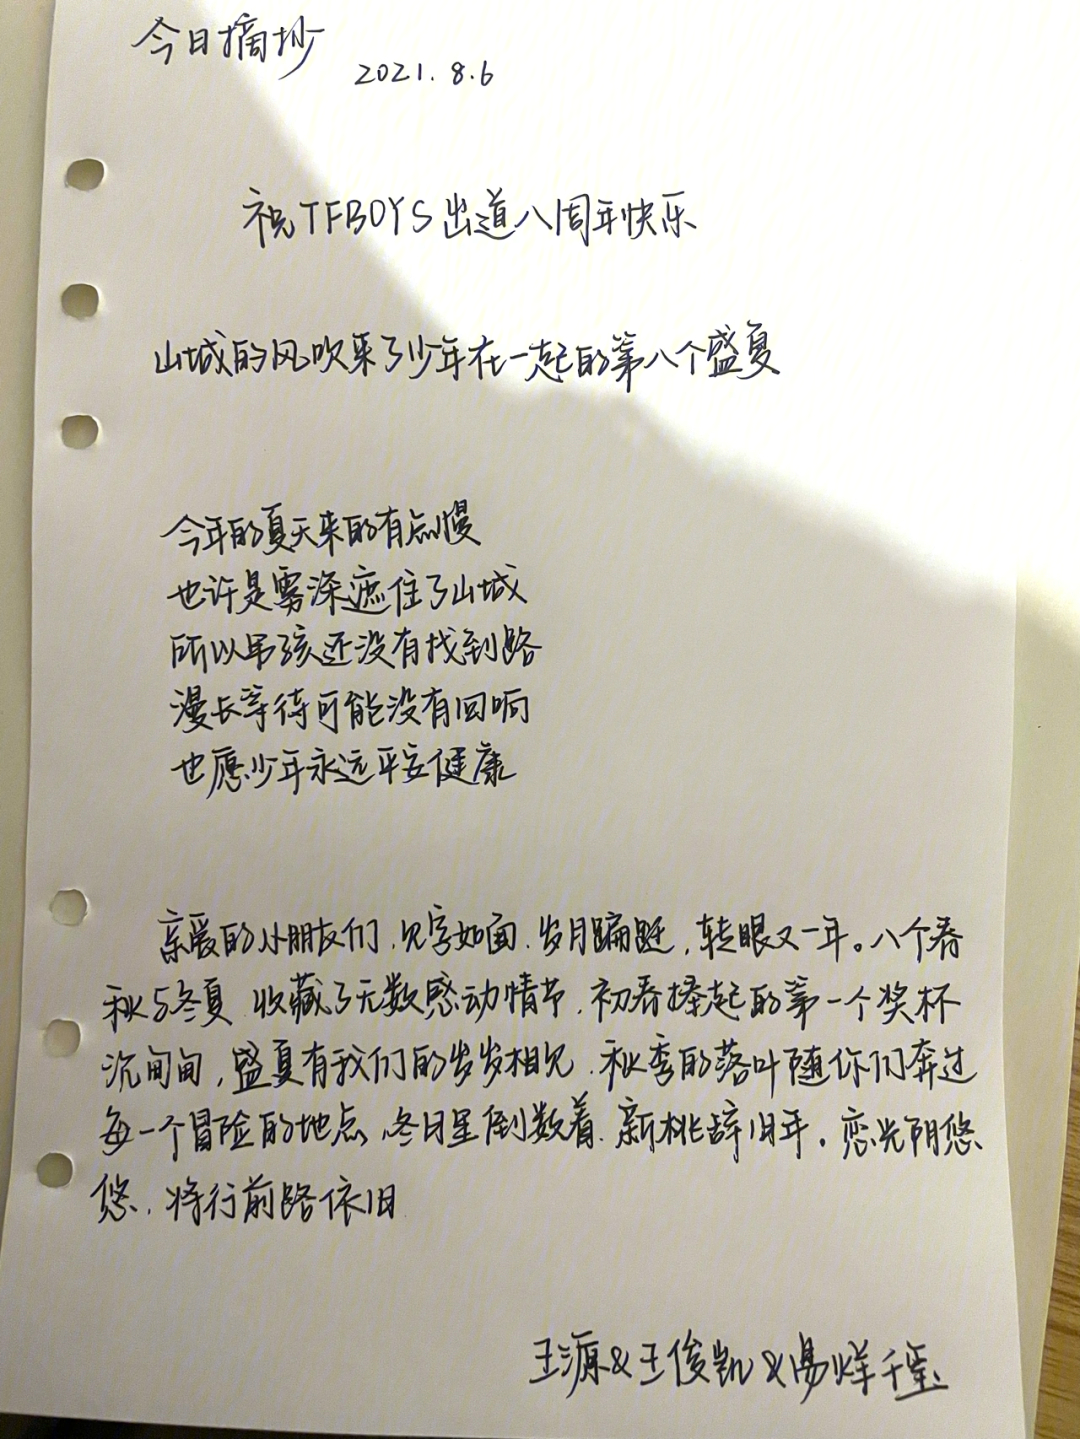 今日摘抄
2021.8.6
祝TFBOYS出道八周年快乐
山城的风吹来了少年在一起的第八个盛夏
今年的夏天来的有点慢
也许是雾深遮住了山城
所以吊孩还没有找到路
漫长等待可能没有回响
也愿少年永远平安健康
亲爱的小朋友们,见字如面,岁月蹁跹,转眼又一年。八个春
秋与冬夏,收藏了无数感动情节,初春捧起的第一个奖杯
沉甸甸,盛夏有我们的岁岁相见,秋季的落叶随你们奔过
每一个冒险的地点,冬日星倒数着,新桃辞旧年。恋光阴悠
悠,将行前路依旧
王源&王俊凯&易烊千玺